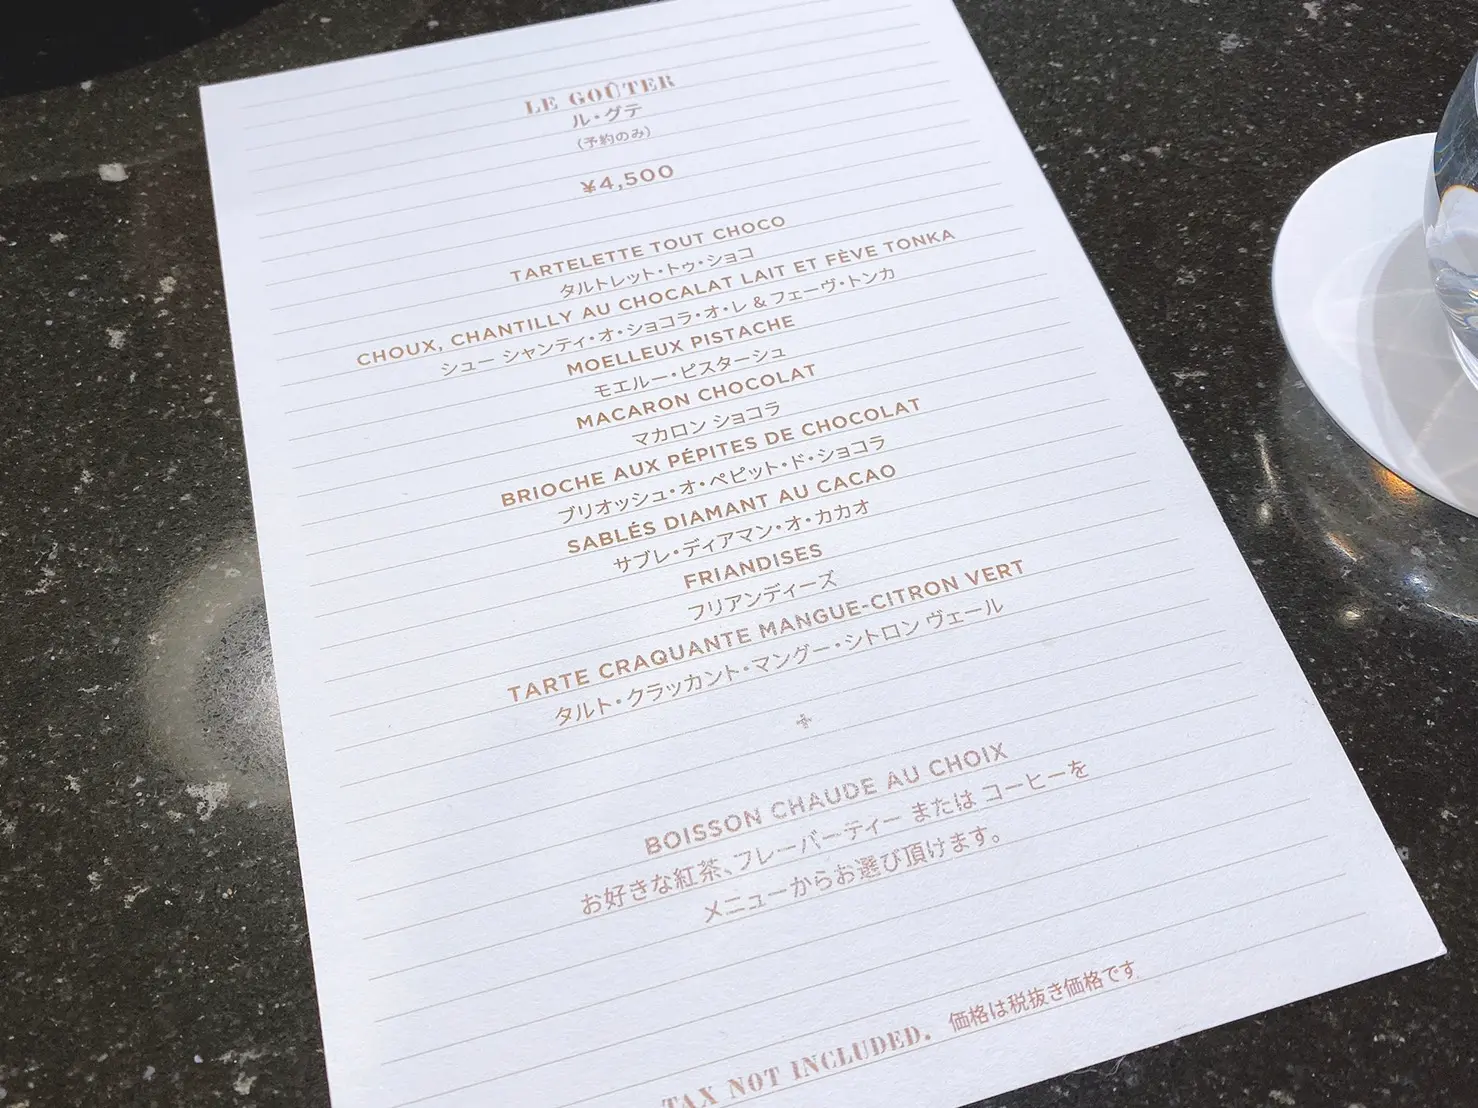 LE GOÛTER
ル・グテ
(予約のみ)
¥4,500
TARTELETTE TOUT CHOCO
タルトレット・トゥ・ショコ
CHOUX, CHANTILLY AU CHOCALAT LAIT ET FÈVE TONKA
シュー シャンティ・オ・ショコラ・オ・レ & フェーヴ・トンカ
MOELLEUX PISTACHE
モエルー・ピスターシュ
MACARON CHOCOLAT
マカロン ショコラ
BRIOCHE AUX PÉPITES DE CHOCOLAT
ブリオッシュ・オ・ペピット・ド・ショコラ
SABLÉS DIAMANT AU CACAO
サブレ・ディアマン・オ・カカオ
FRIANDISES
フリアンディーズ
TARTE CRAQUANTE MANGUE-CITRON VERT
タルト・クラッカント・マングー・シトロン ヴェール
BOISSON CHAUDE AU CHOIX
お好きな紅茶、フレーバーティー または コーヒーを
メニューからお選び頂けます。
TAX NOT INCLUDED. 価格は税抜き価格です